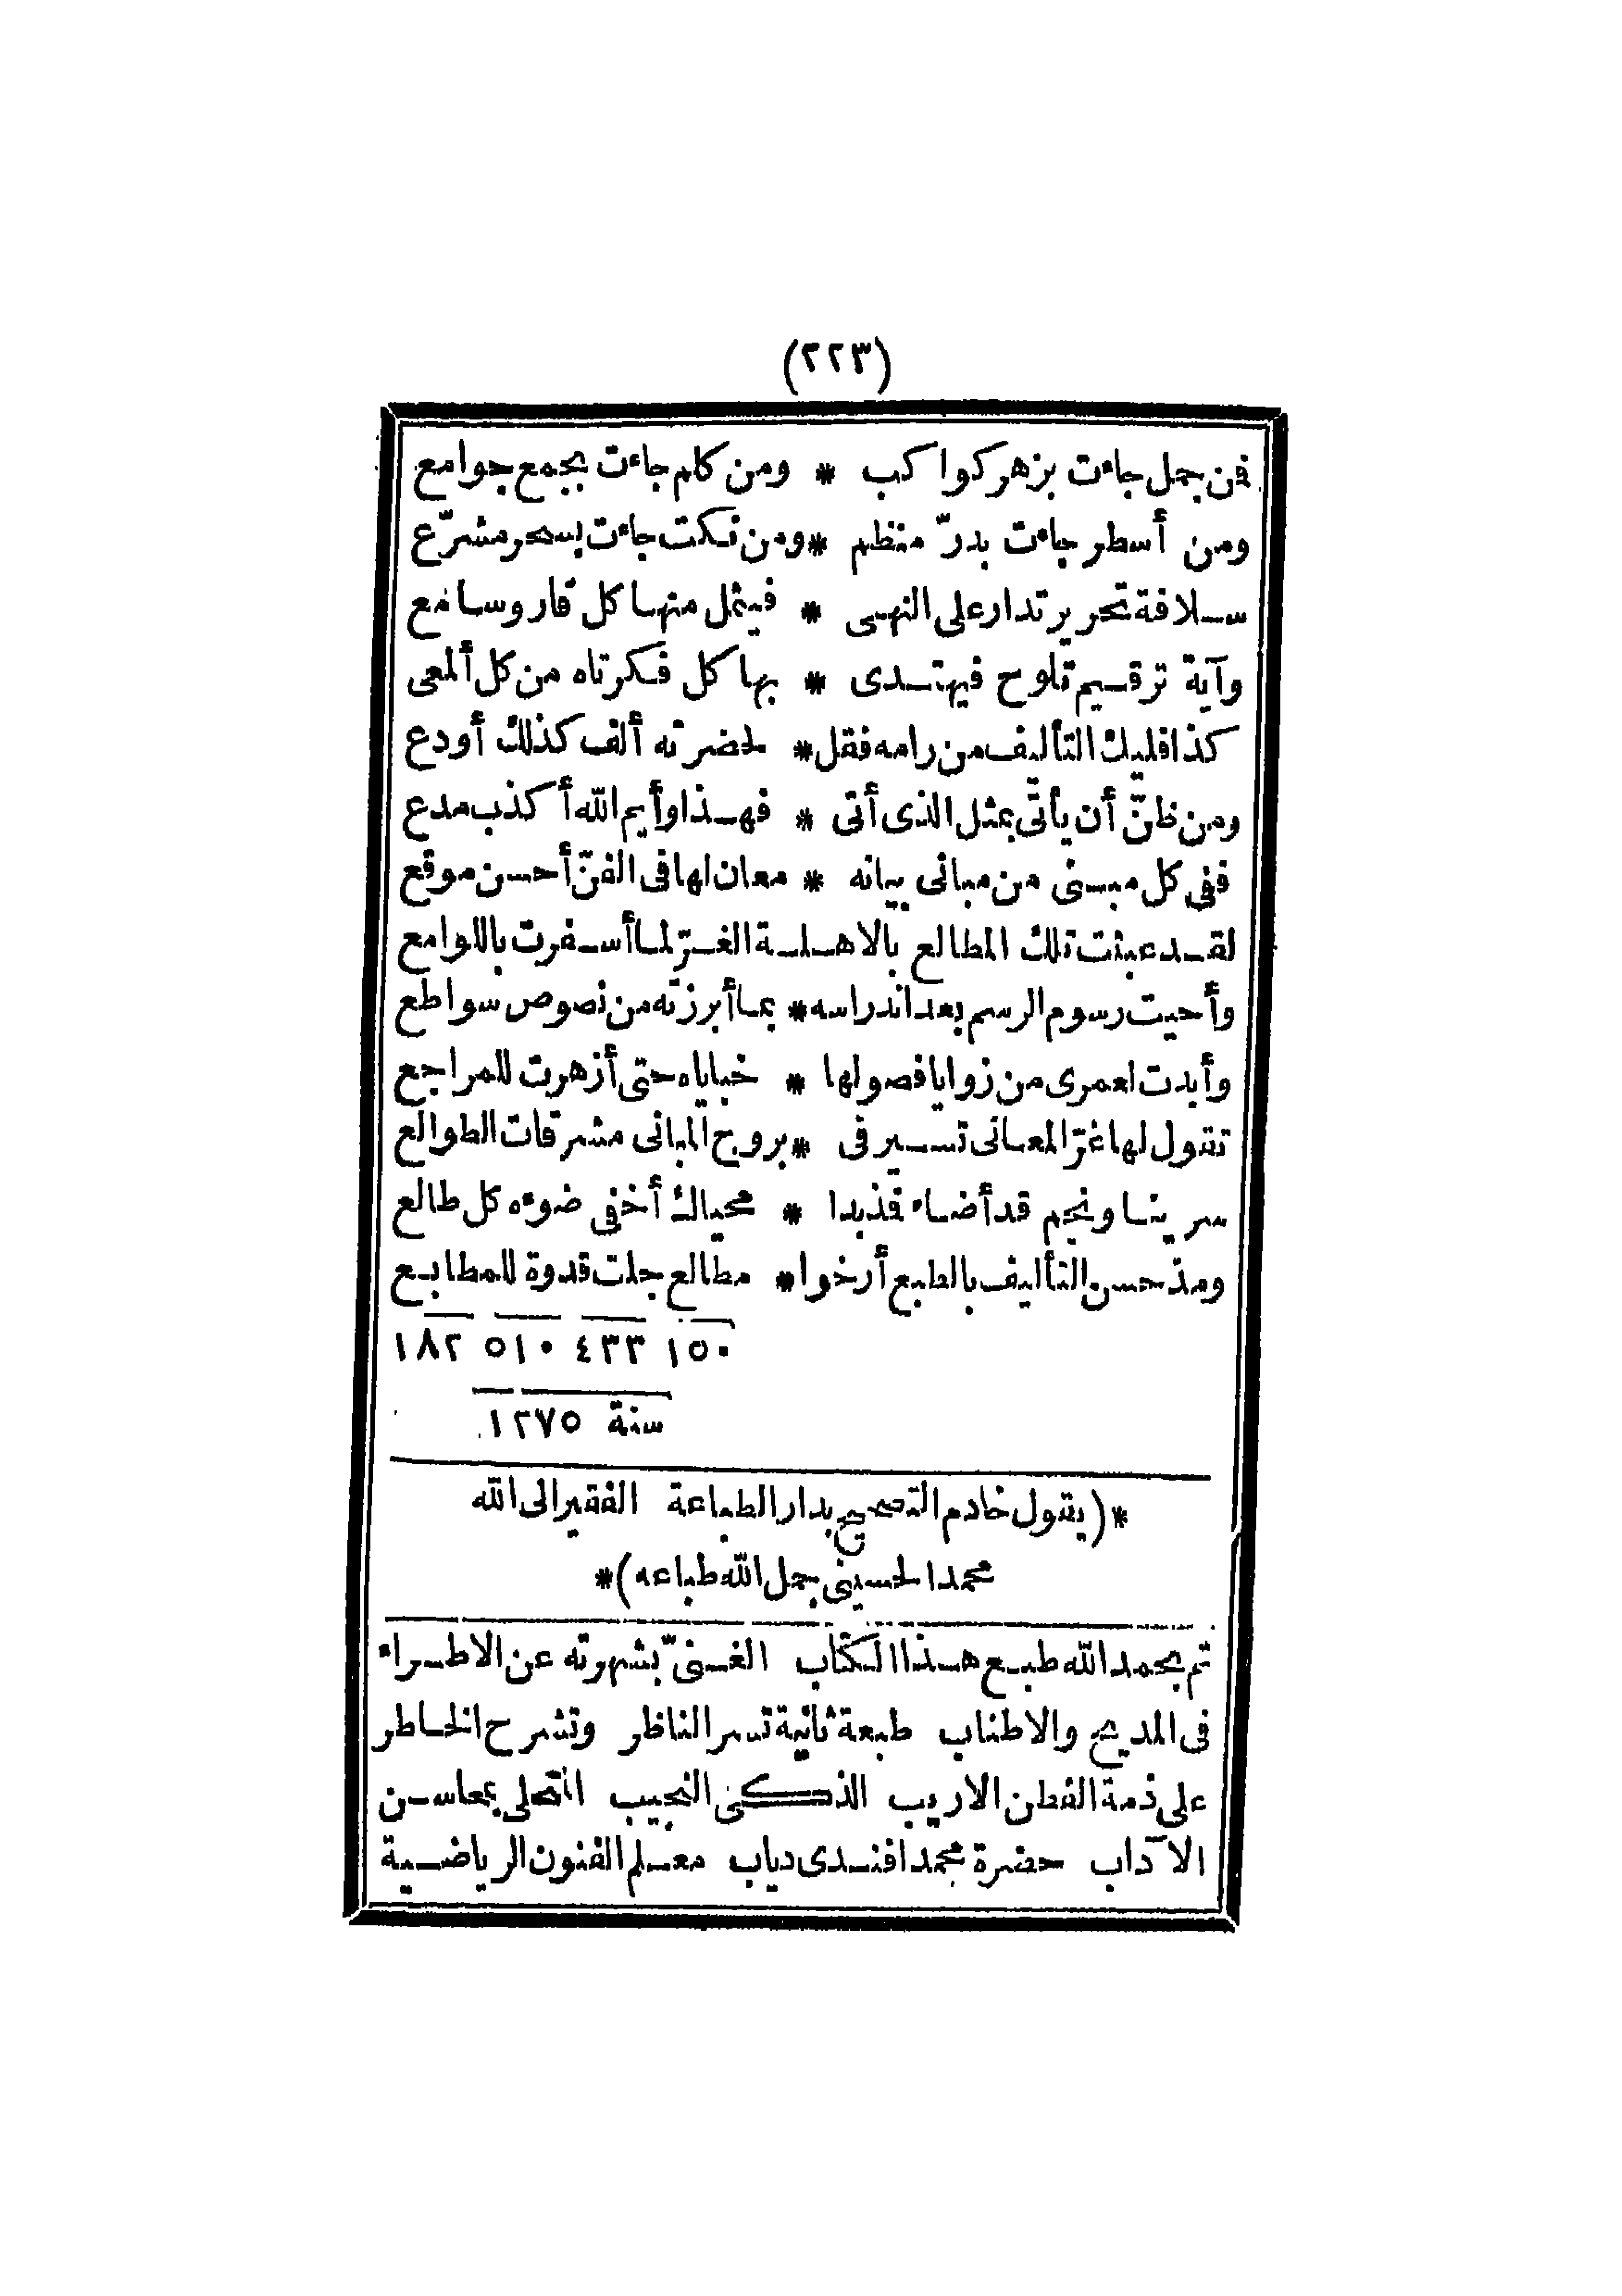 (٢٢٣)
فن جمل جاءت بزهر كواكب * ومن كلم جاءت بجمع جوامع
ومن أسطر جاءت بدرّ منظم * ومن نكت جاءت بسحر مشرّع
سلافة تحرير تدار على النهى * فيثمل منها كل قار وسامع
وآية ترقيم تلوح فيهتدى * بها كل فكر تاه من كل ألمعى
كذا فليك التأليف من رامه فقل * لحضرته ألف كذلك أودع
ومن ظنّ أن يأتّى بمثل الذى أتى * فهذا وأيم الله أكذب مدع
ففى كل مبنى من مبانى بيانه * معان لها فى الفنّ أحسن موقع
لقد عبثت تلك المطالع بالاهلة الغرّ لما أسفرت باللوامع
وأحيت رسوم الرسم بعد اندراسه * بما أبرزته من نصوص سواطع
وأبدت لعمرى من زوايا فصولها * خباياه حتى أزهرت للمراجع
تقول لها غرّ المعانى تسير فى * بروج المبانى مشرقات الطوالع
سرينا ونجم قد أضاء فذ بدا * محياك أخفى ضوءه كل طالع
ومذ حسن التأليف بالطبع أرخوا * مطالع جلت قدوة للمطابع
١٥٠ ٤٣٣ ٥١٠ ١٨٢
سنة ١٢٧٥
*(يقول خادم التصحيح بدار الطباعة الفقير الى الله
محمد الحسينى جمل الله طباعه)*
تم بحمد الله طبع هذا الكتاب الغنىّ بشهرته عن الاطراء
فى المديح والاطناب طبعة ثانية تسر الناظر وتشرح الخاطر
على ذمة الفطن الاريب الذكى النجيب المتحلى بمحاسن
الآداب حضرة محمد افندى دياب معلم الفنون الرياضية